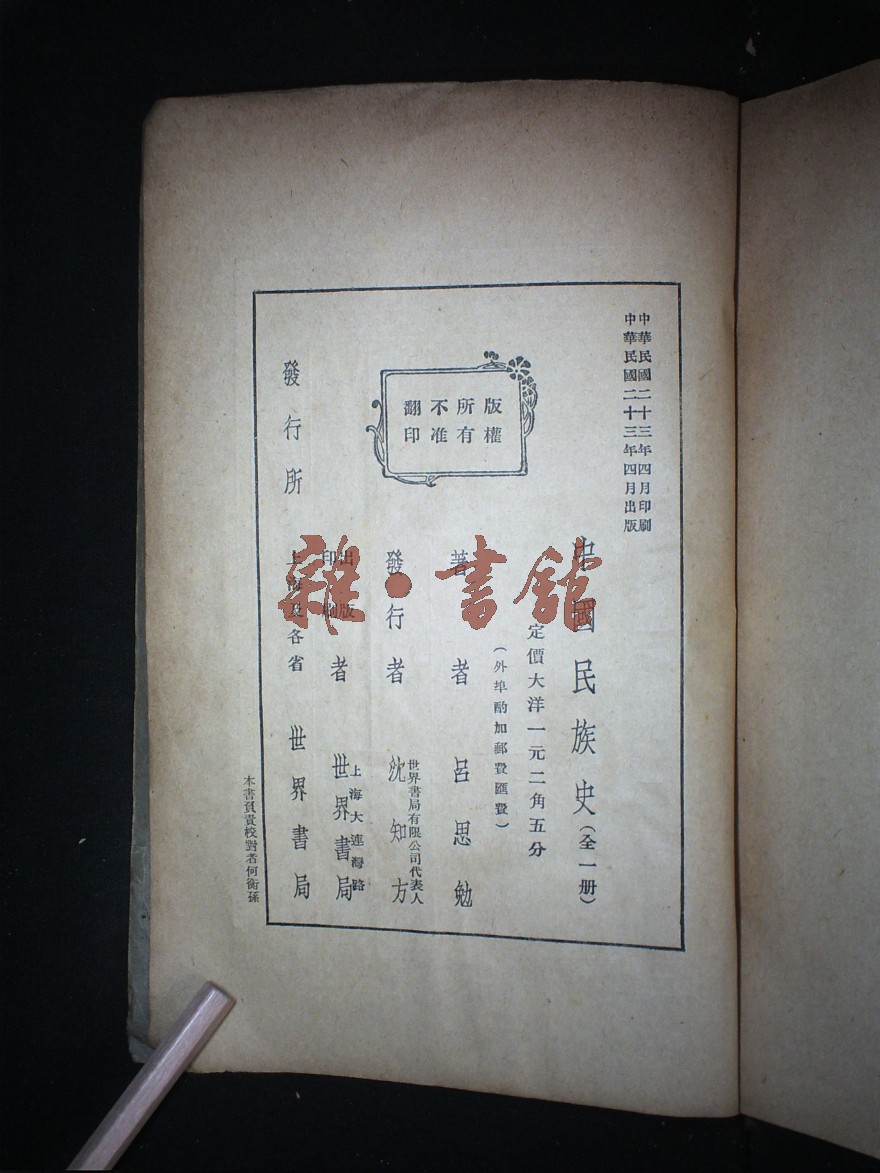 中華民國二十三年四月印刷
中華民國二十三年四月出版
版權
所有
不准
翻印
中國民族史(全一册)
定價大洋一元二角五分
(外埠酌加郵費匯費)
著者 呂思勉
發行者 世界書局有限公司代表人 沈知方
出版印刷者 上海大連灣路 世界書局
發行所 上海及各省 世界書局
本書負責校對者何衡孫
雜·書館